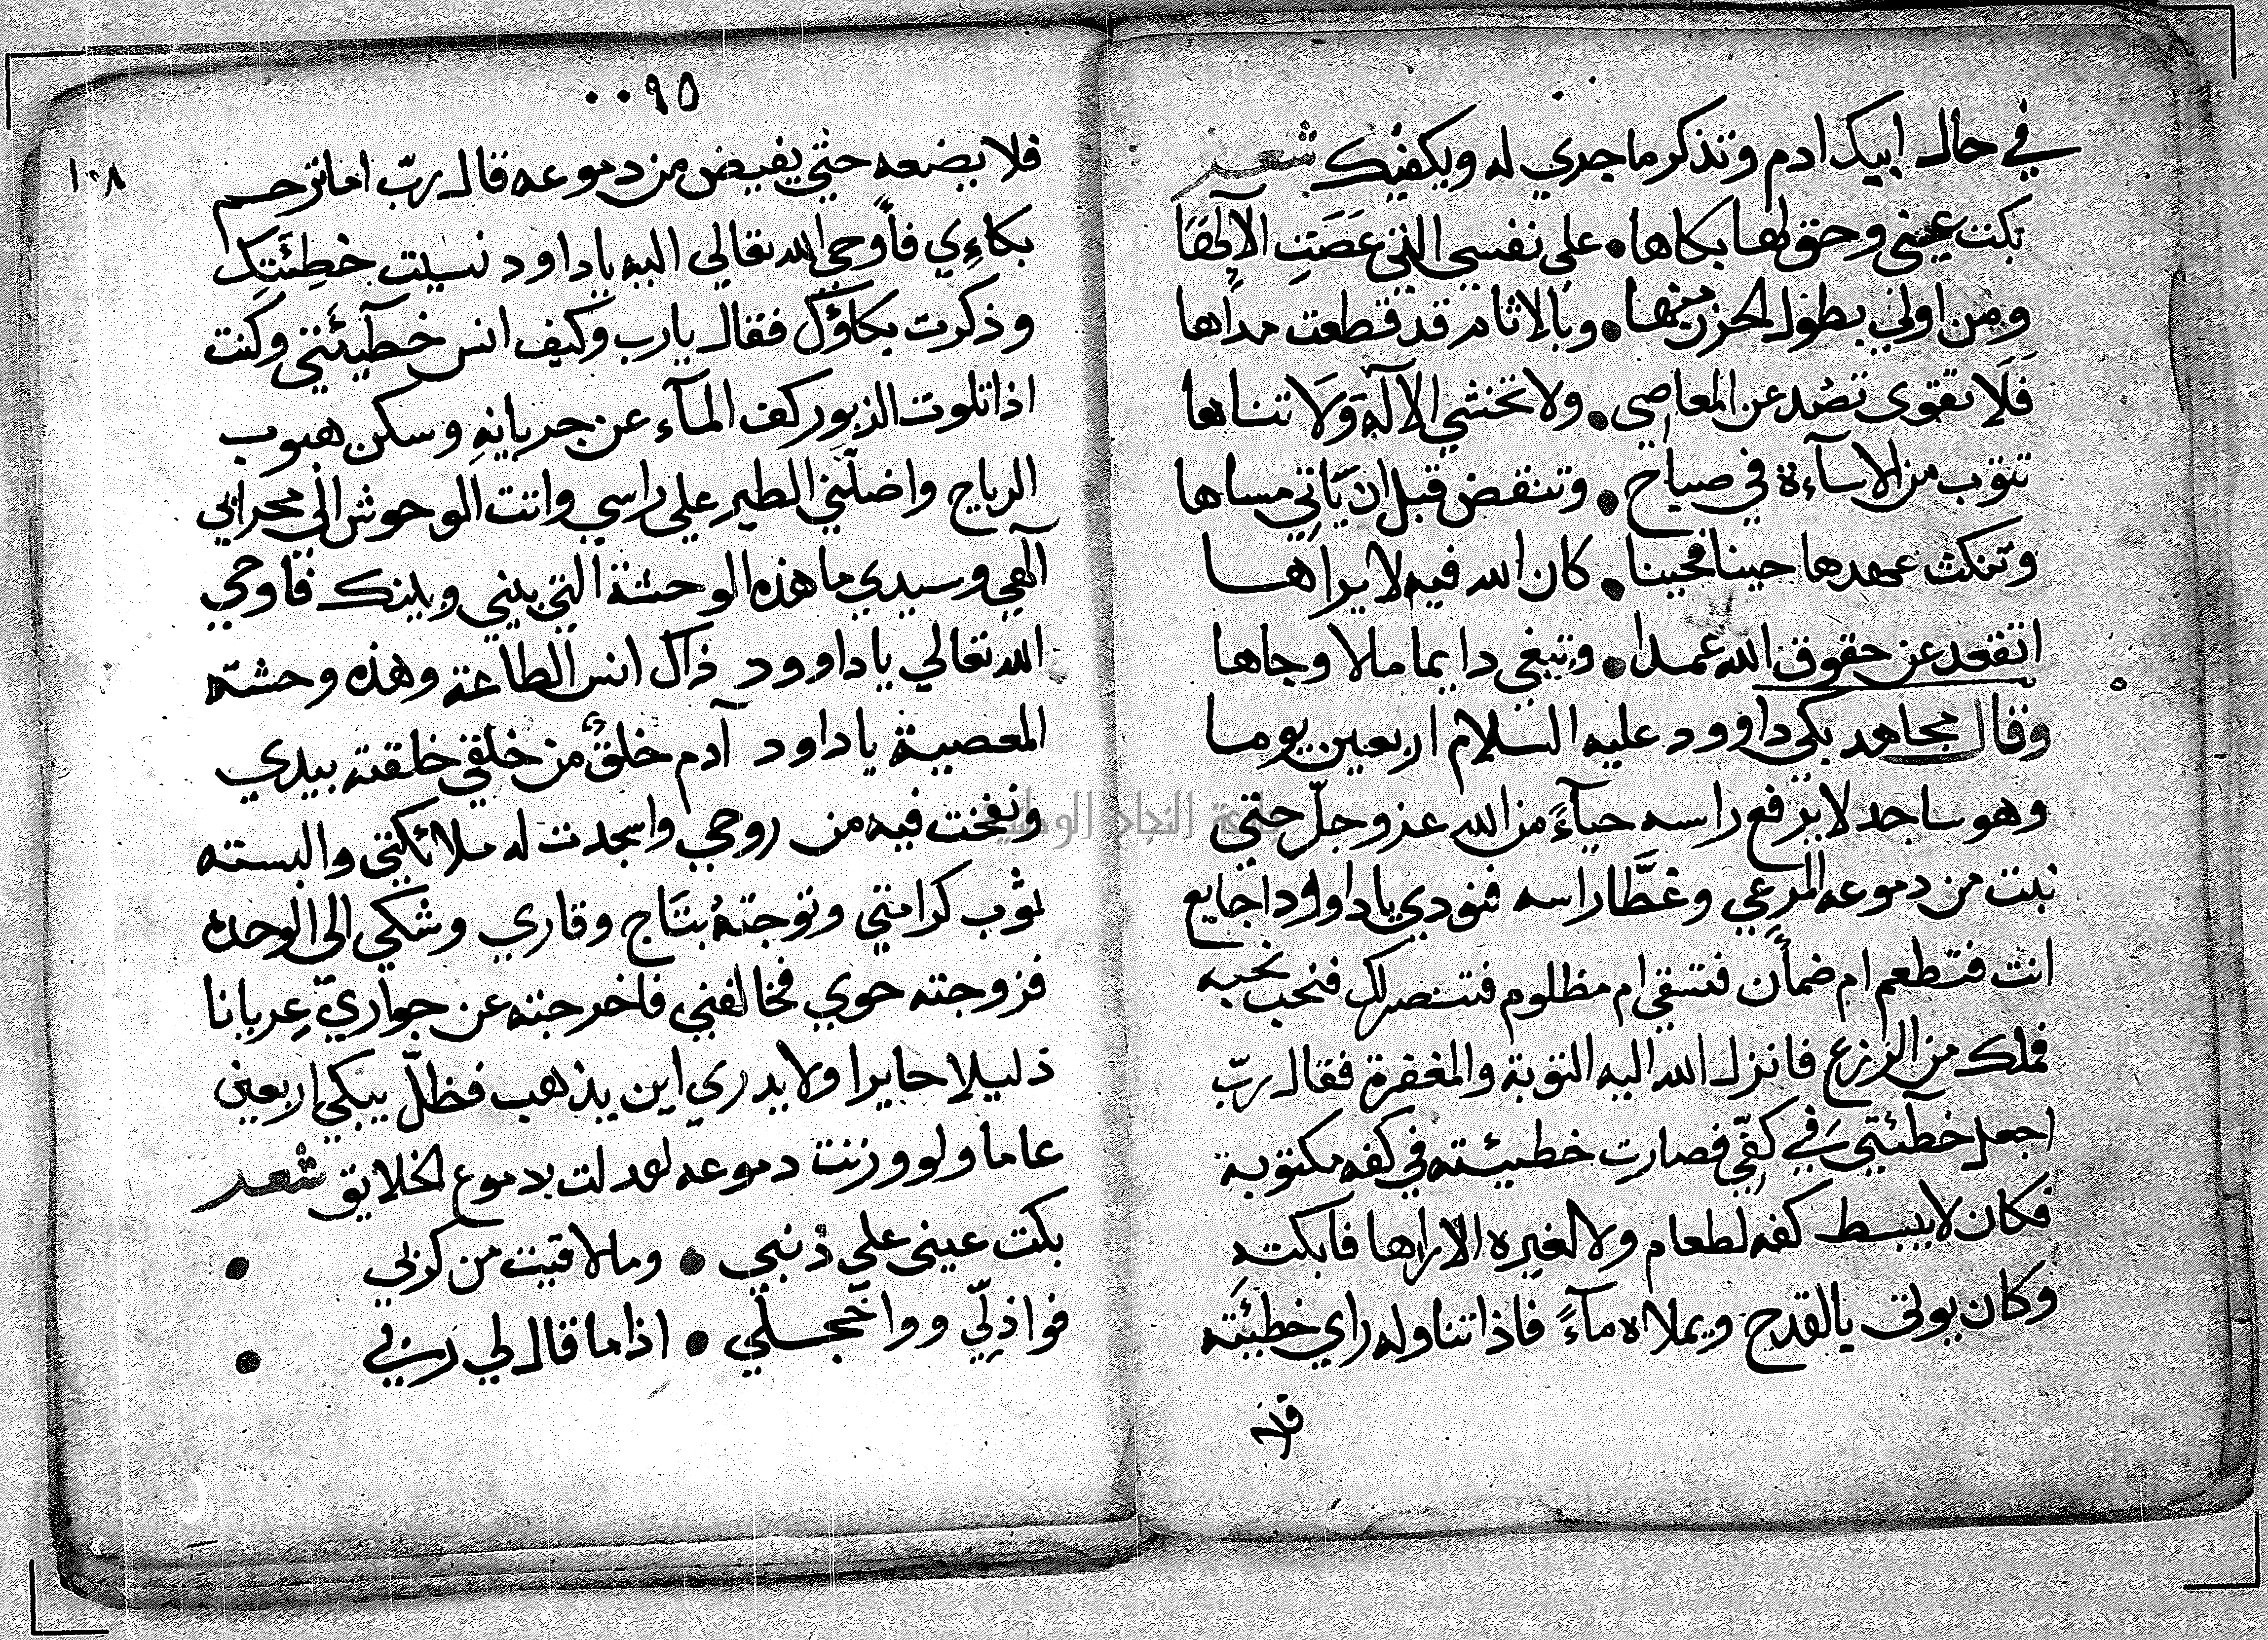 في حال ابيك ادم وتذكر ما جري له ويكفيك شعر
بكت عيني وحق لها بكاها • علي نفسي التي عَصَتِ الآلٰها
ومن اولي بطول الحزن منها • وبالاثام قد قطعت مداها
فَلَا تقوي تصُد عن المعاصي • ولا تخشي الالٓه وَلَا تناها
تتوب من الاسآءة في صباح • وتنقض قبل ان يَاتي مساها
وتنكث عهدها حينا فحينا • كان الله فيه لا يراها
اتقعد عن حقوق الله عمدا • وتبغي دايما مالا وجاها
وقال مجاهد بكي داوود عليه السلام اربعين يوما
وهو ساجد لا يرفع راسه حيآءً من الله عز وجلّ حتي
نبت من دموعه المرعي وغطَّا راسه فنودي يا داوود اجايع
انت فتطعم ام ضمأن فتسقي ام مظلوم فتنصر لك فنحب نحبه
من الزرع فانزل الله اليه التوبة والمغفرة فقال ربّ
اجعل خطئيتي في كفّي فصارت خطيئته في كفه مكتوبة
فكان لا يبسط كفه لطعام ولا لغيره الا راها فابكته
وكان يوتي بالقدح ويملاه مآءً فاذا تناوله راي خطيئته
فلا
٠٠٩٥
١٠٨
فلا يضعه حتي يفيض من دموعه قال ربّ اما ترحم
بكاءِي فأوحي الله تعالي اليه يا داود نسيت خطِئتك
وذكرت بكاؤك فقال يارب وكيف انس خطيئتي وكنت
اذا تلوت الزبور كف المآء عن جريانهِ وسكن هبوب
الرياح واضلّني الطير علي راسي واتت الوحوش الي محرابي
آلهي وسيدي ما هذه الوحشة التي بيني وبينك فاوحي
الله تعالي يا داوود ذاك انس الطاعة وهذه وحشته
المعصية يا داود آدم خلقٌ من خلقي خلقته بيدي
ونفخت فيه من روحي واسجدت له ملائكتي والبسته
ثوب كرامتي وتوجتهُ بتَاج وقاري وشكي الي الوحده
فزوجته حوي فخالفني فاخرجته عن جواريّ عِريانا
ذليلا حايرا ولا يدري اين يذهب فظلّ يبكي اربعين
عاما ولو وزنت دموعه لعدلت بدموع الخلايق شعر
بكت عيني علي ذنبي • وما لاقيت من كربي •
فواذلّي وواخجلي • اذا ما قال لي ربّي •